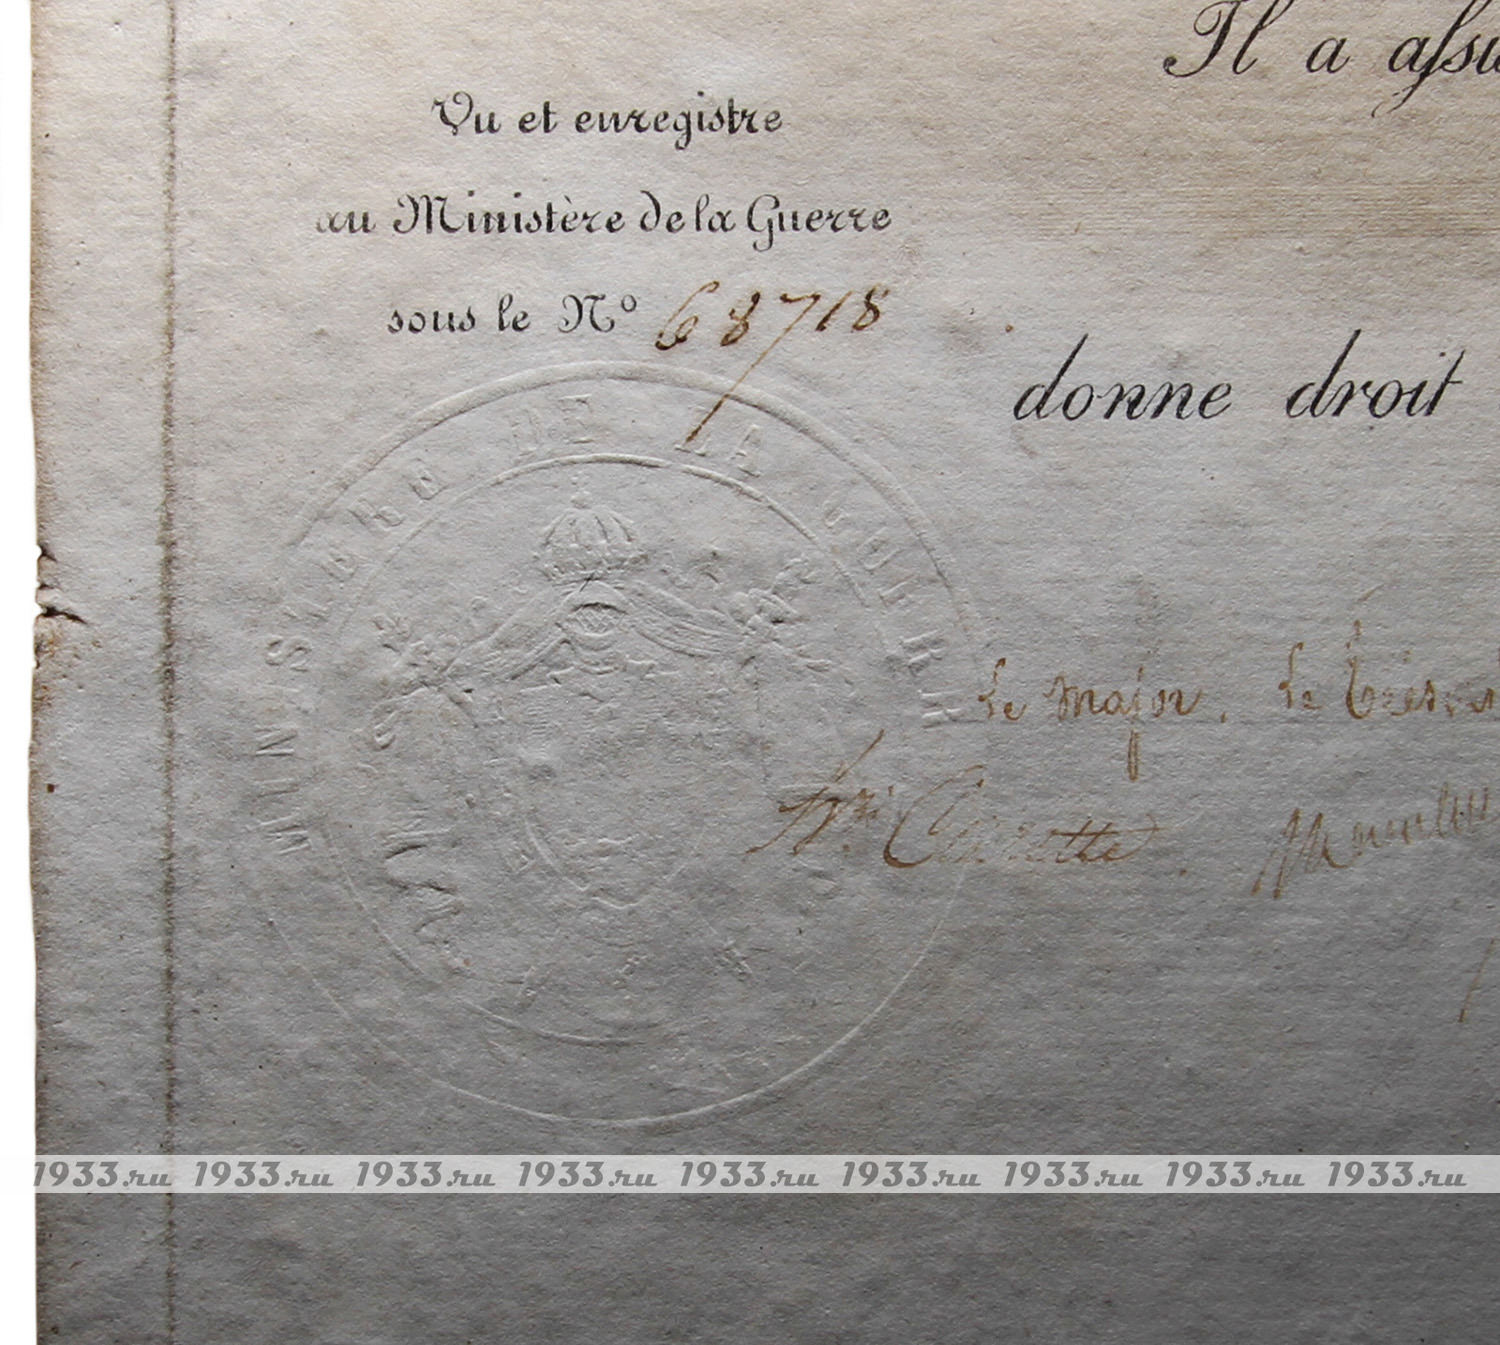 Il a assu
Vu et enregistre
au Ministère de la Guerre
sous le Nº 68718
donne droit
MINISTERE DE LA GUERRE
Le Major. Le Trésor
1933.ru 1933.ru 1933.ru 1933.ru 1933.ru 1933.ru 1933.ru 1933.ru 1933.ru